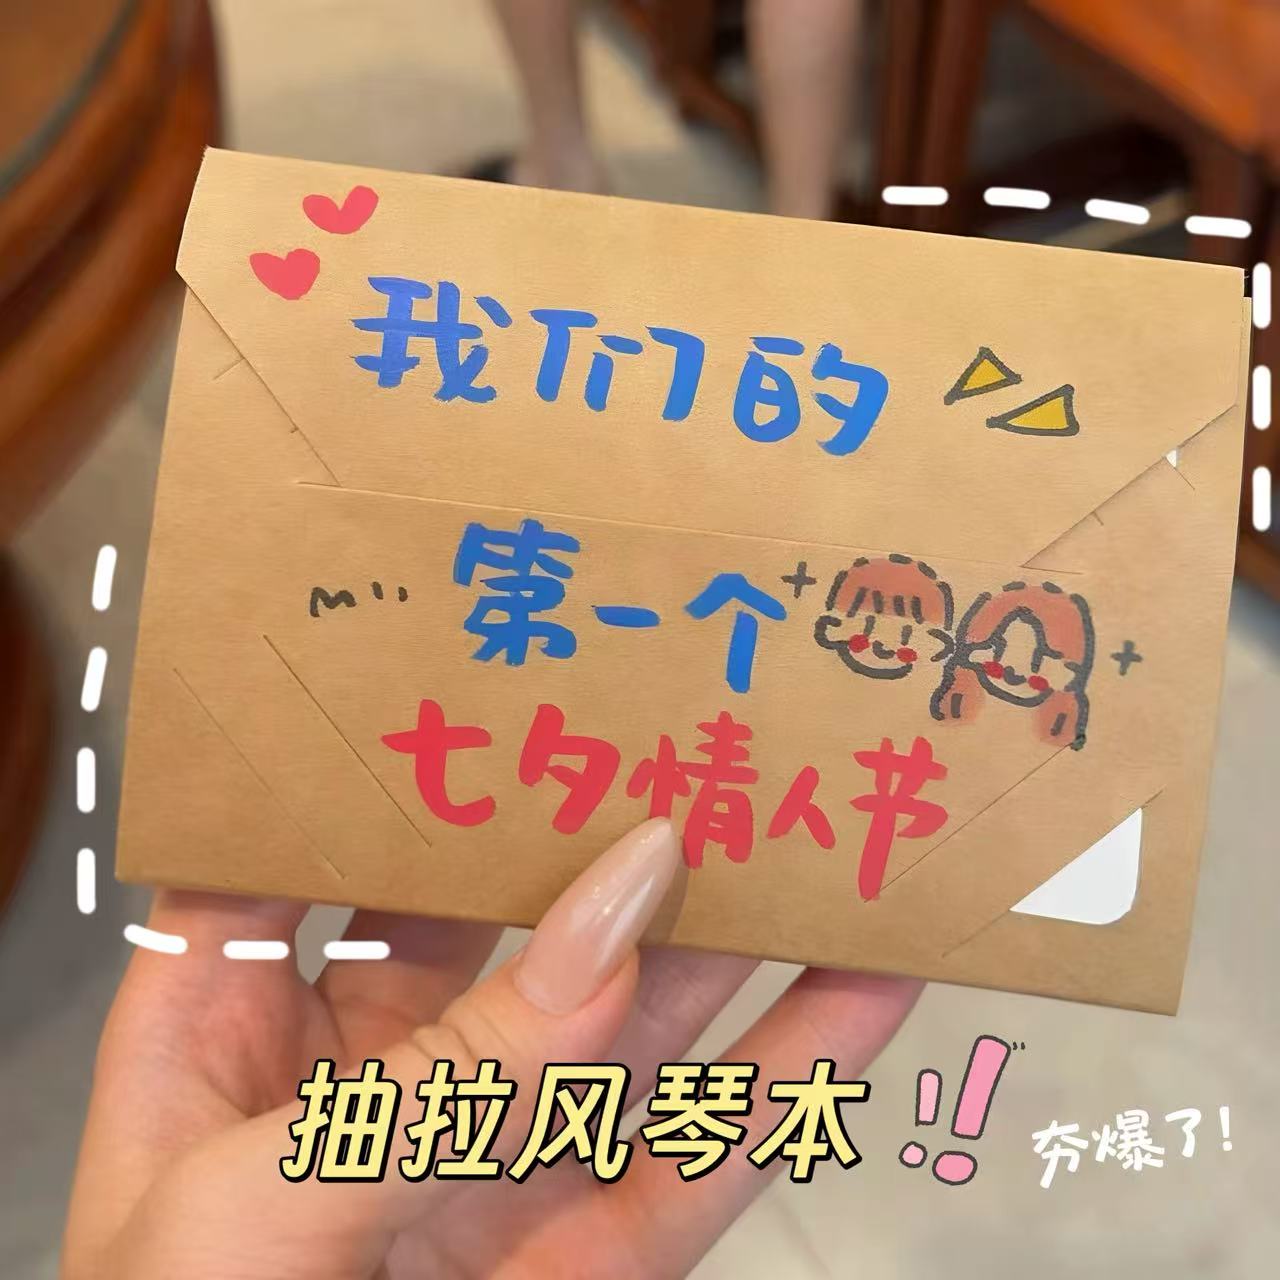 我们的
第一个
七夕情人节
抽拉风琴本
夯爆了!